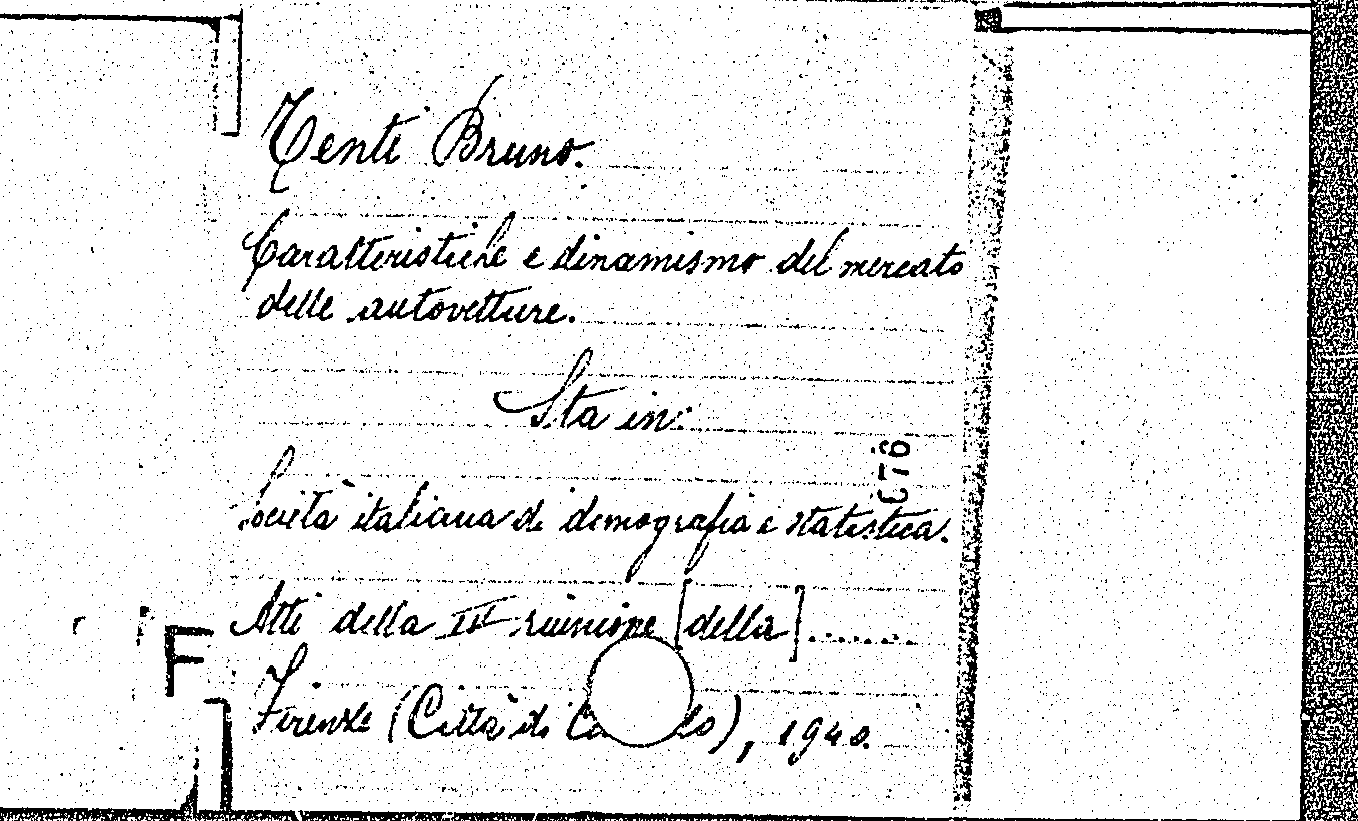 Tenti Bruno.
Caratteristiche e dinamismo del mercato
delle autovetture.
Sta in:
Società italiana di demografia e statistica.
Atti della riunione [della].......
Firenze (Città di), 1940.
F